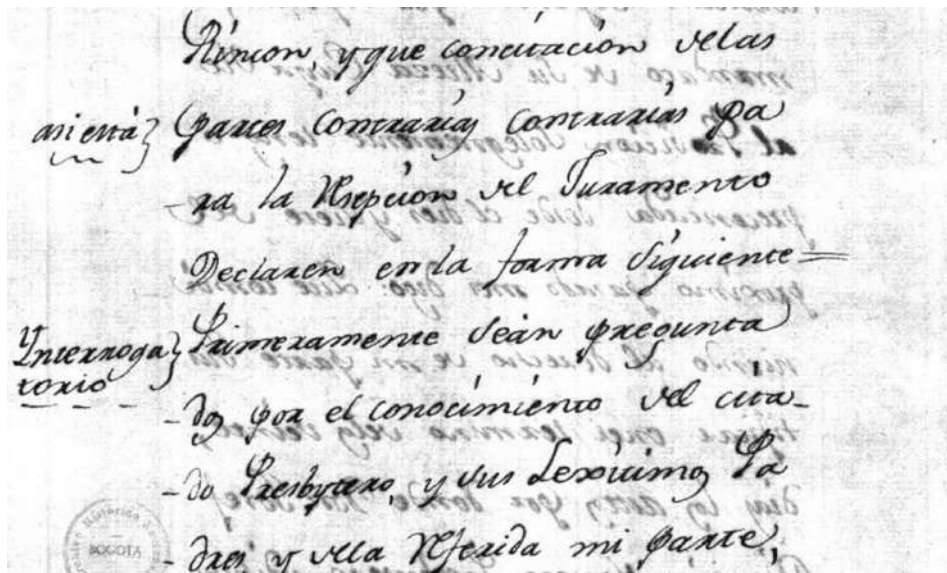 Rincon, y que concitacion delas
asi está
partes contrarias contrarias pa
ra la Resepcion del Juramento
Declaren en la forma siguiente=
Ynterroga
torio
Primeramente sean pregunta
-dos por el conocimiento del cita-
-do Presbytero, y sus Lexitimos Pa
dres y dela Referida mi parte,
BOGOTA